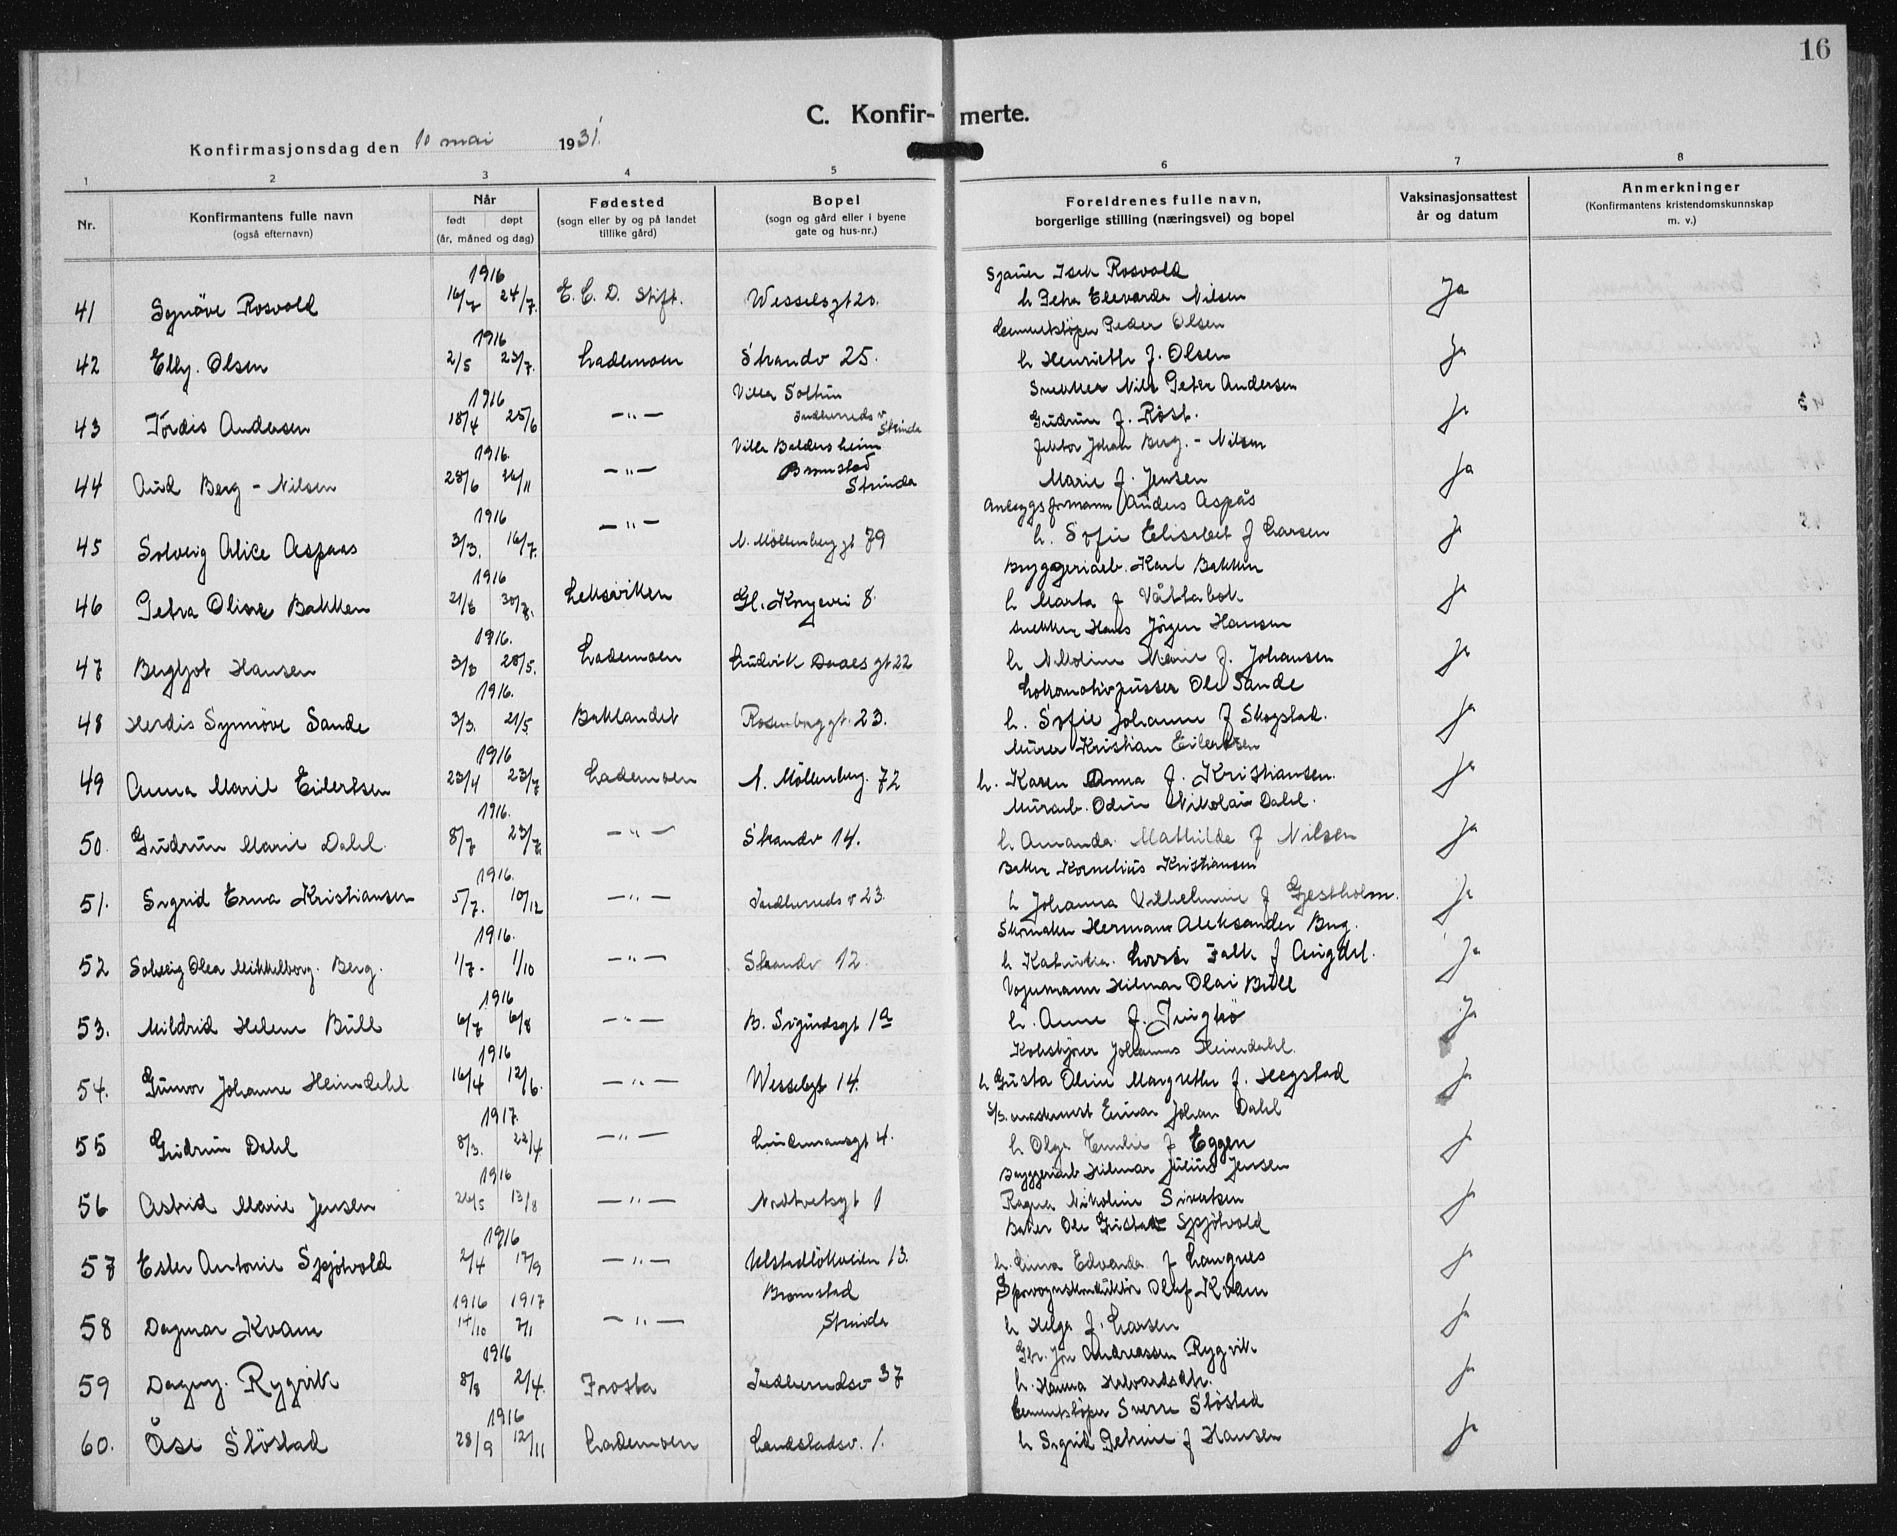 16
C. Konfir-merte.
Konfirmasjonsdag den 10 mai 1931.
1 2 3 4 5 6 7 8
Nr. Konfirmantens fulle navn (også efternavn) Når født døpt (år, måned og dag) Fødested (sogn eller by og på landet tillike gård) Bopel (sogn og gård eller i byene gate og hus-nr.) Foreldrenes fulle navn, borgerlige stilling (næringsvei) og bopel Vaksinasjonsattest år og datum Anmerkninger (Konfirmantens kristendomskunnskap m. v.)
1916 Rosvold
41 Synöve Rosvold 16/7 24/7. E. C. D. Stift. Wesselsgt 20. h Petra Elevarda Nilsen Ja
1916 Peder Olsen
42 Elly. Olsen 2/5 23/7. Lademoen Strandv 25. h Henriette f. Olsen Ja
1916 Villa Solhim Snekker Nils Peter Andersen
43 Tordis Andersen 18/4 25/6 —"— Indherredsv Strinda Gudrun f. Röst. Ja
1916. Villa Baldersheim Johan Berg.-Nilsen
44 Aud Berg-Nilsen 28/6 26/11 —"— Bromstad Strinda Marie f. Jensen Ja
1916 Anlegsformann Anders Aspås
45 Solveig Alice Aspaas 3/3. 16/7. —"— N. Möllenberggt 79 h. Sofie Elisabet f Larsen Ja
1916 Bryggeriarb. Karl Bakken
46 Petra Olive Bakken 21/6 30/8. Leksviken Gl. Kongevei 8. h Marta f Ja
1916. Snekker Hans Jörgen Hansen
47 Bergljot Hansen 3/3 28/5. Lademoen Ludvik Daaes gt 22 h Nikoline Marie f. Johansen Ja
1916. Lokomotivpusser Ole Sande
48 Herdis Synnöve Sande 3/3. 21/5. Baklandet Rosenborggt. 23. h. Sofie Johanne f Skogstad. Ja
1916 Murer Kristian Eilertsen
49 Anna Maril Eilertsen 23/4 23/7 Lademoen N. Möllenberg. 72 h. Karen Anna f. Kristiansen. Ja
1916. Murarb. Odin Nikolai Dahl.
50. Gudrun Marie Dahl. 8/7 23/7. —"— Strandv 14. h Amanda Mathilde f Nilsen Ja
1916. Baker Kornelius Kristiansen
51. Sigrid Erna Kristiansen 5/7. 10/12 —"— Indherredsv 23. h Johanna Vilhelmine f Gjestholm. Ja
1916. Skomaker Herman Aleksander Berg.
52 Solveig Olea Mikkelborg. Berg. 1/7. 1/10 —"— Strandv 12. h Falk f Ja
1916 Vognmann Hilmar Olai Bull
53. Mildrid Helene Bull 6/7 6/8 —"— B. Sigurdsgt 1a h. Anne f. Ja
1916 Johannes Heimdahl.
54. Gunvor Johanne Heimdahl 16/4 12/6. —"— Wesselsgt 14. h Gusta Oline Margrethe f. Hegstad Ja
1917. Einar Johan Dahl
55 Gudrun Dahl 8/3. 22/4 —"— Lindemansgt 4. h Olga Emilie f Eggen Ja
1916 Bryggeriarb Hilmar Julius Jensen
56 Astrid Marie Jensen 26/5 13/8 —"— Nidtvetsgt 1 Ragna Nikoline Sivertsen Ja
1916 Baker Ole Gustav Spjötvold
57 Ester Antonie Spjötvold 2/4 17/9 —"— Ulstadlökveien 13. h. Edvarda f Langnes Ja
1916 1917 Bromstad Sporvognskonduktör Olaf Kvam
58 Dagmar Kvam 14/10 2/1 —"— Strinda h Helga f. Larsen Ja
1916 Gbr. Jon Andreassen Rygvik
59 Dagny. Rygvik 8/3 2/4. Frosta Indherredsv 37 h. Hanna Halvardsdtr. Ja
1916 Cementstöper Sverre Slöstad
60. Åse Slöstad 28/9 12/11 Lademoen Landstadsv. 1. h Sigrid Petrine f Hansen Ja